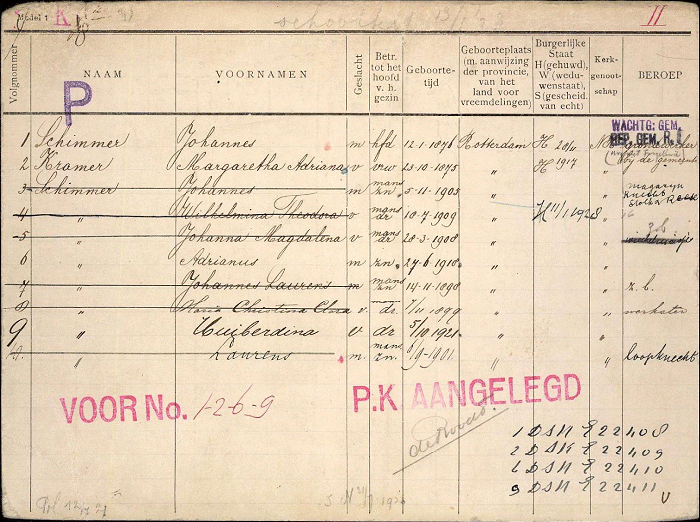 Model 1 K II
Volgnommer NAAM VOORNAMEN Geslacht Betr. tot het hoofd v. h. gezin Geboorte-tijd Geboorteplaats (m. aanwijzing der provincie, van het land voor vreemdelingen) Burgerlijke Staat H (gehuwd), W (weduwenstaat), S (gescheid. van echt) Kerk-genoot-schap BEROEP
P
WACHTG: GEM.
REP. GEM. R.
1 Schimmer Johannes m hfd 12-1-1876 Rotterdam H 20/4 NH
2 Kramer Margaretha Adriana v vrw 23-10-1875 " H 1917 " bij de gemeente
3 Schimmer Johannes m mans zn. 5-11-1905 " " magazijn knecht
4 " Wilhelmina Theodora v mans dr 10-7-1909 " H 11/1 1928 "
5 " Johanna Magdalena v mans dr 20-3-1908 " " z.b.
6 " Adrianus m zn. 27-6-1910 " "
7 " Johannes Laurens m mans zn 14-11-1898 " " z.b.
8 " Maria Christina Clara v. dr. 7/11 1899 " " werkster
9 " Huiberdina v dr 5/10 1921 " "
10. " Laurens m. mans zn. 6/9-1901 " " loopknecht
VOOR No. 1-2-6-9 P.K AANGELEGD
1 DSH E 22408
2 DSK E 22409
6 DSH E 22410
9 DSH E 22411